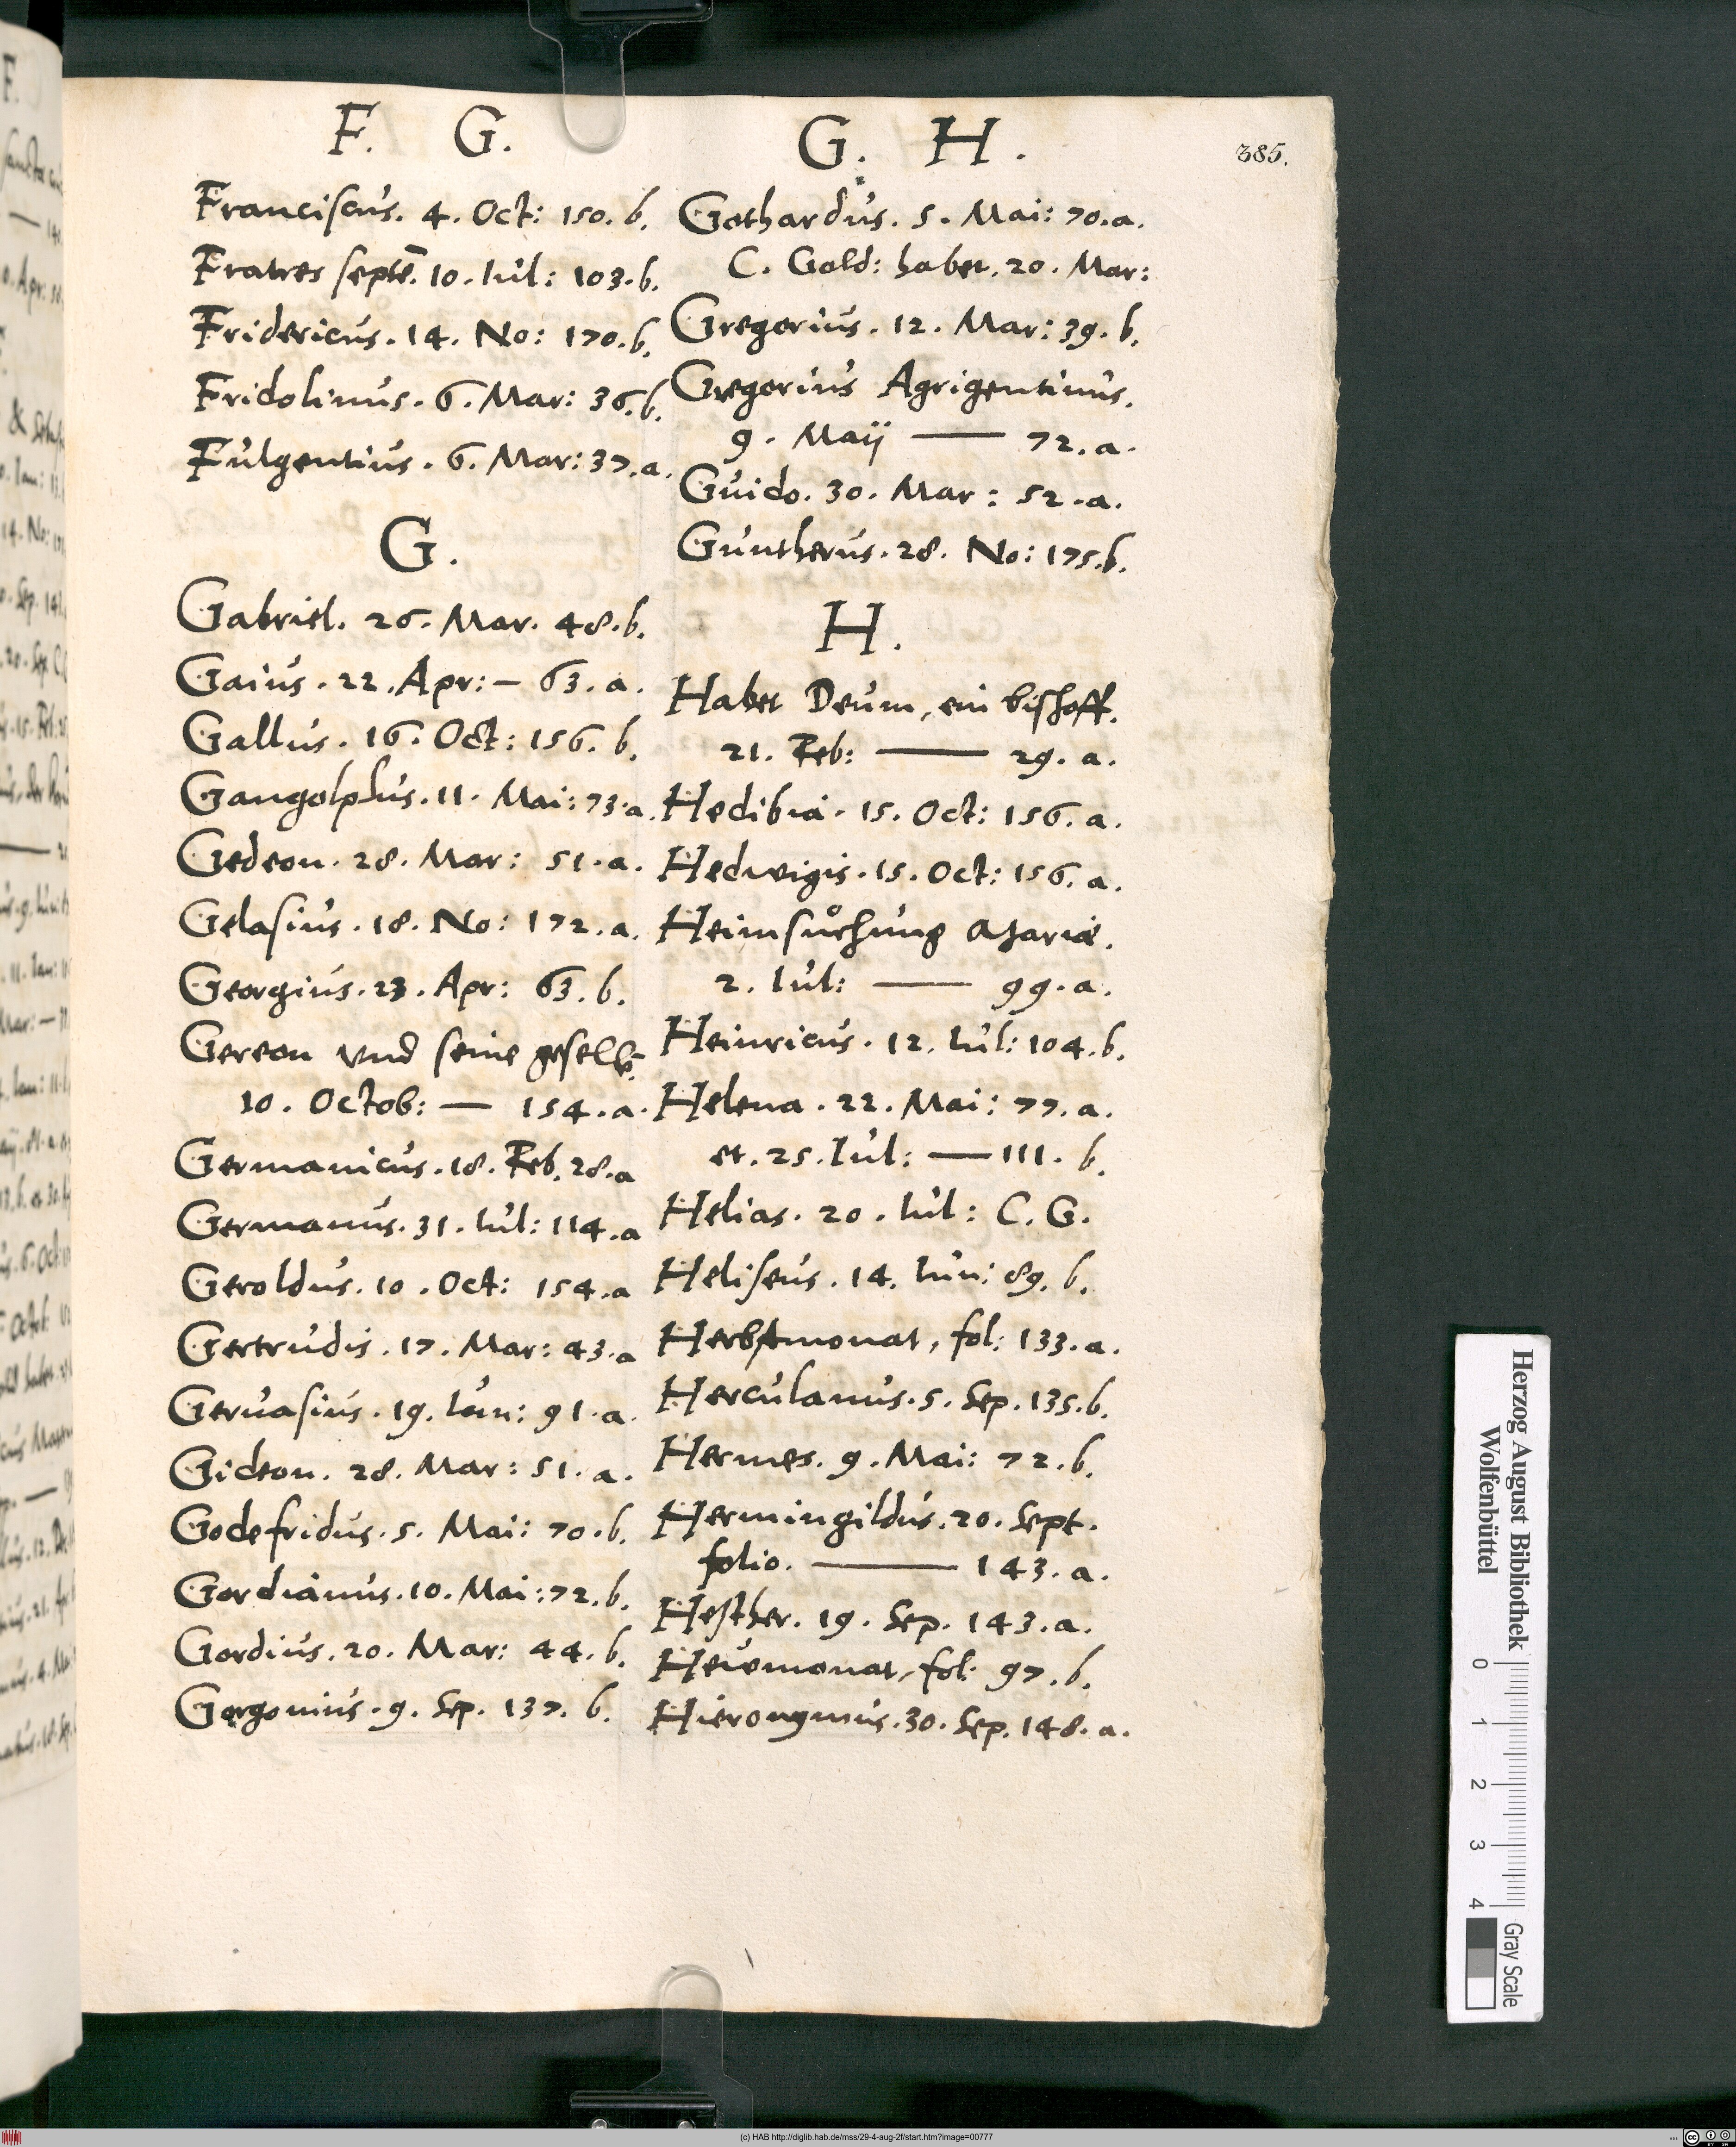 F. G.
Franciscus. 4. Oct: 150. b.
Fratres septē. 10. Iul: 103. b.
Fridericus. 14. No: 170. b.
Fridolinus. 6. Mar: 36. b.
Fulgentius. 6. Mar: 37. a.
G.
Gabriel. 26. Mar. 48. b.
Gaius. 22. Apr: — 63. a.
Gallus. 16. Oct: 156. b.
Gangolphus. 11. Mai: 73. a.
Gedeon. 28. Mar: 51. a.
Gelasius. 18. No: 172. a.
Georgius. 23. Apr: 63. b.
Gereon vnd seine gesellē.
10. Octob: — 154. a.
Germanicus. 18. Feb. 28. a
Germanus. 31. Iul: 114. a
Geroldus. 10. Oct: 154. a
Gertrudis. 17. Mar: 43. a
Geruasius. 19. Iun: 91. a.
Gideon. 28. Mar: 51. a.
Godefridus. 5. Mai: 70. b.
Gordianus. 10. Mai: 72. b.
Gordius. 20. Mar: 44. b.
Gorgonius. 9. Sep. 137. b.
G. H.
385.
Gothardus. 5. Mai: 70. a.
C. Gold: habet. 20. Mar:
Gregorius. 12. Mar: 39. b.
Gregorius Agrigentinus.
9. Maij — 72. a.
Guido. 30. Mar: 52. a.
Guntherus. 28. No: 175. b.
H.
Habet Deum, ein bischoff.
21. Feb: — 29. a.
Hedibia. 15. Oct: 156. a.
Hedwigis. 15. Oct: 156. a.
Heimsůchung Mariæ.
2. Iul: — 99. a.
Heinricus. 12. Iul: 104. b.
Helena. 22. Mai: 77. a.
et. 25. Iul: — 111. b.
Helias. 20. Iul: C. G.
Heliseus. 14. Iun: 89. b.
Herbstmonat, fol: 133. a.
Herculanus. 5. Sep. 135. b.
Hermes. 9. Mai: 72. b.
Hermingildus. 20. Sept.
folio. — 143. a.
Hesther. 19. Sep. 143. a.
Heüwmonat, fol: 97. b.
Hieronymus. 30. Sep. 148. a.
Herzog August Bibliothek
Wolfenbüttel
0 1 2 3 4
Gray Scale
(c) HAB http://diglib.hab.de/mss/29-4-aug-2f/start.htm?image=00777